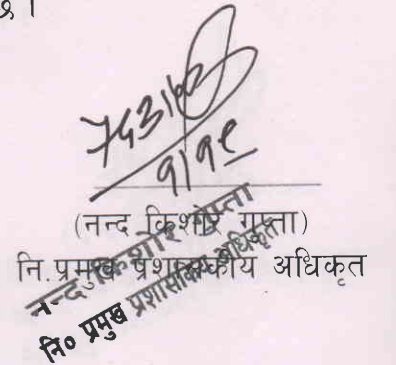 छ ।
(नन्द किशोर गुप्ता)
नि.प्रमुख प्रशासकीय अधिकृत
नन्द किशोर गुप्ता
नि० प्रमुख प्रशासकीय अधिकृत